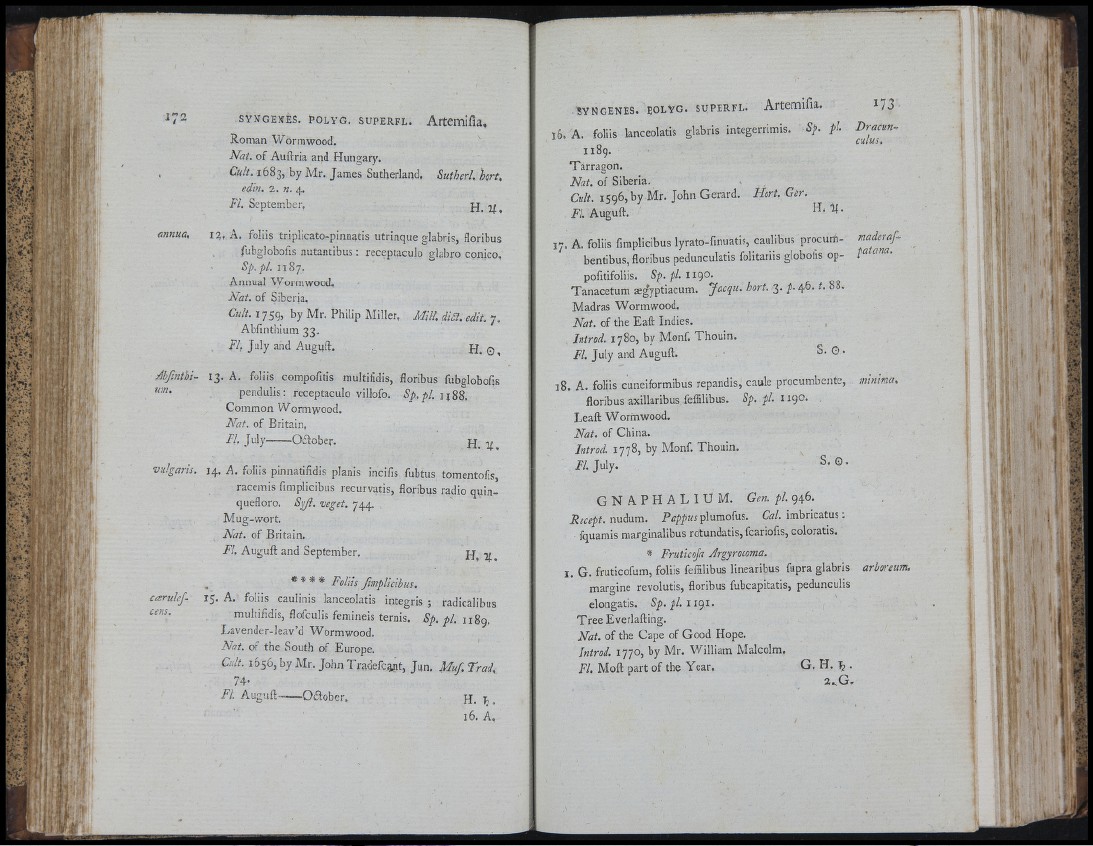 172 SYNGENES. POLYG. SUPERFL. Artemiſia.
Roman Wormwood.
Nat. of Auſtria and Hungary.
Cult. 1683, by Mr. James Sutherland. Sutherl. hort.
edin. 2. n. 4.
Fl. September. H. ♃.
annua. 12. A. foliis triplicato-pinnatis utrinque glabris, floribus
ſubgloboſis nutantibus: receptaculo glabro conico.
Sp. pl. 1187.
Annual Wormwood.
Nat. of Siberia.
Cult. 1759, by Mr. Philip Miller. Mill. dict. edit. 7.
Abſinthium 33.
Fl. July and Auguſt. H. ☉.
Abſinthi- 13. A. foliis compoſitis multifidis, floribus ſubgloboſis
um. pendulis: receptaculo villoſo. Sp. pl. 1188.
Common Wormwood.
Nat. of Britain.
Fl. July——October. H. ♃.
vulgaris. 14. A. foliis pinnatifidis planis inciſis ſubtus tomentoſis,
racemis ſimplicibus recurvatis, floribus radio quin-
quefloro. Syſt. veget. 744.
Mug-wort.
Nat. of Britain.
Fl. Auguſt and September. H. ♃.
* * * * Foliis ſimplicibus.
cærulеſ- 15. A. foliis caulinis lanceolatis integris; radicalibus
cens. multifidis, floſculis femineis ternis. Sp. pl. 1189.
Lavender-leav'd Wormwood.
Nat. of the South of Europe.
Cult. 1656, by Mr. John Tradeſcant, Jun. Muſ. Trad.
74.
Fl. Auguſt——October. H. ♄.
16. A.
SYNGENES. POLYG. SUPERFL. Artemiſia. 173
16. A. foliis lanceolatis glabris integerrimis. Sp. pl. Dracun-
1189. culus.
Tarragon.
Nat. of Siberia.
Cult. 1596, by Mr. John Gerard. Hort. Ger.
Fl. Auguſt. H. ♃.
17. A. foliis ſimplicibus lyrato-ſinuatis, caulibus procum- maderaſ-
bentibus, floribus pedunculatis ſolitariis globoſis op- patana.
poſitifoliis. Sp. pl. 1190.
Tanacetum ægyptiacum. Jacqu. hort. 3. p. 46. t. 88.
Madras Wormwood.
Nat. of the Eaſt Indies.
Introd. 1780, by Monſ. Thouin.
Fl. July and Auguſt. S. ☉.
18. A. foliis cuneiformibus repandis, caule procumbente, minima.
floribus axillaribus ſeſſilibus. Sp. pl. 1190.
Leaſt Wormwood.
Nat. of China.
Introd. 1778, by Monſ. Thouin.
Fl. July. S. ☉.
GNAPHALIUM. Gen. pl. 946.
Recept. nudum. Pappus plumoſus. Cal. imbricatus:
ſquamis marginalibus rotundatis, ſcarioſis, coloratis.
* Fruticoſa Argyrocoma.
1. G. fruticoſum, foliis ſeſſilibus linearibus ſupra glabris arboreum.
margine revolutis, floribus ſubcapitatis, pedunculis
elongatis. Sp. pl. 1191.
Tree Everlaſting.
Nat. of the Cape of Good Hope.
Introd. 1770, by Mr. William Malcolm.
Fl. Moſt part of the Year. G. H. ♄.
2. G.